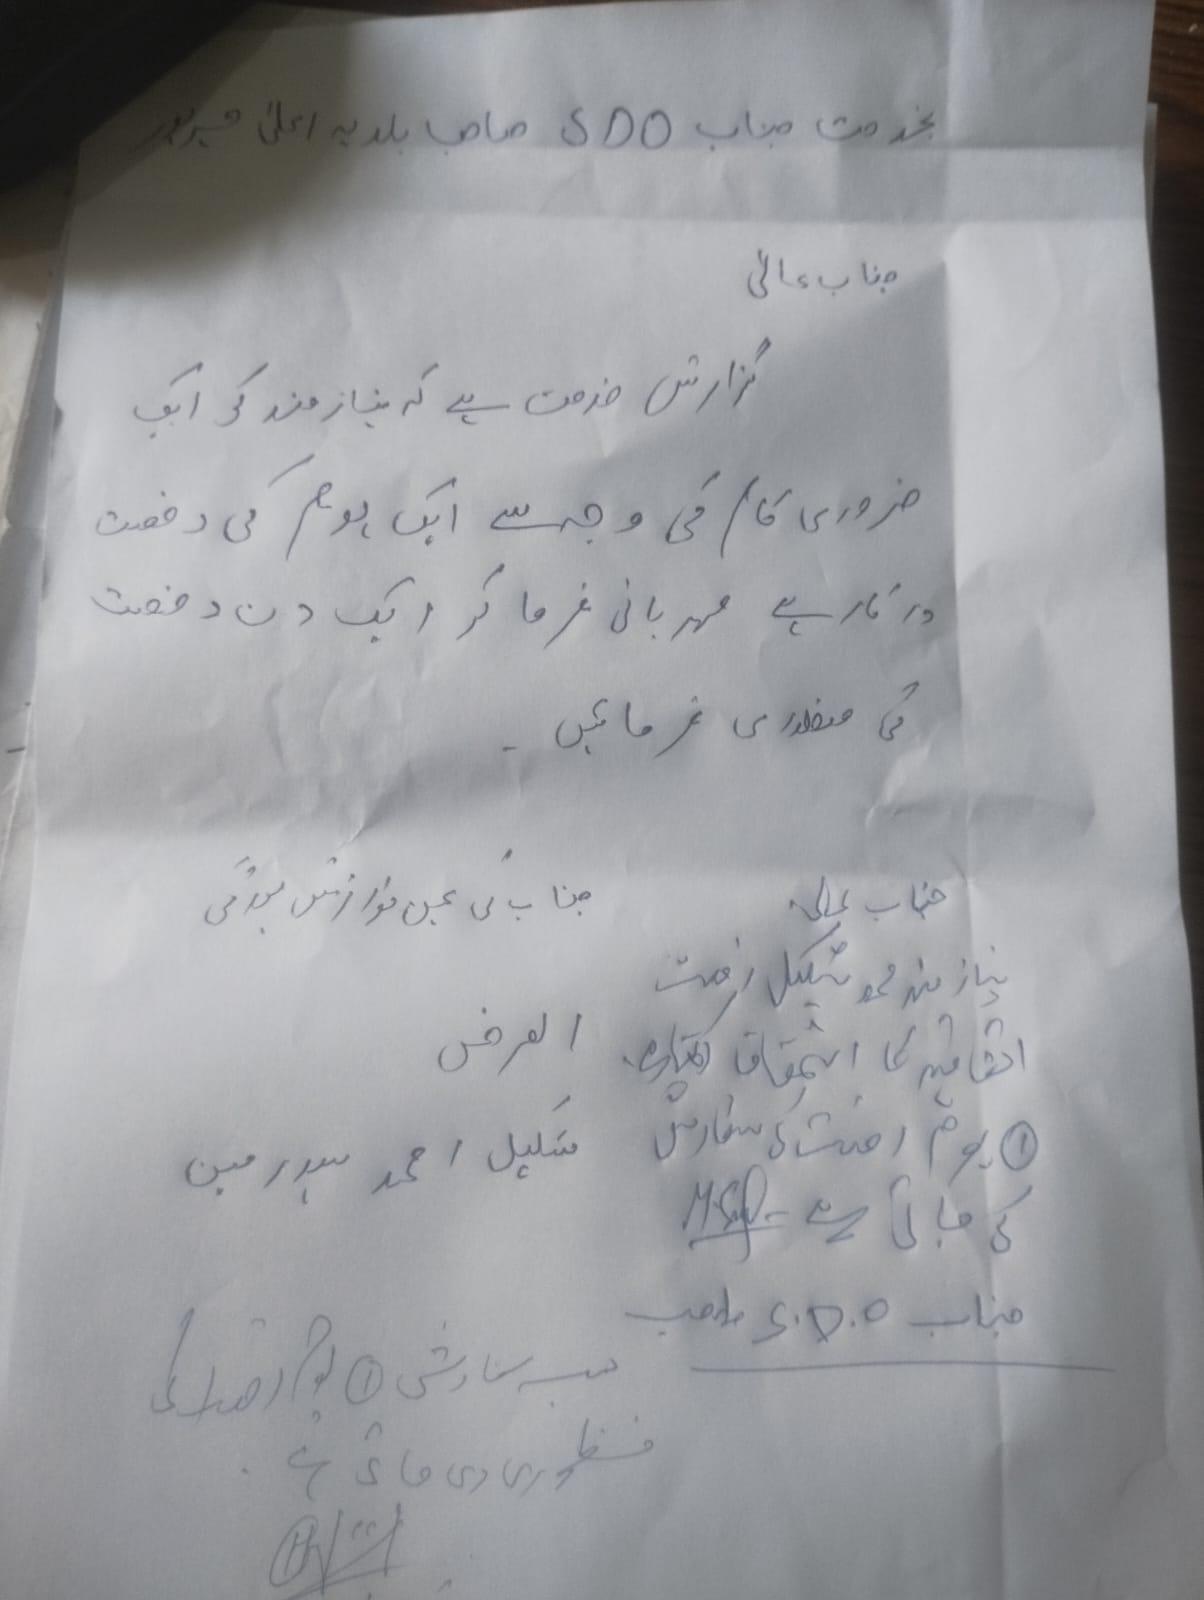 بخدمت جناب SDO صاحب بلدیہ اعلیٰ میرپور
جناب عالی
گزارش خدمت ہے کہ نیازمند کو ایک
ضروری کام کی وجہ سے ایک یوم کی رخصت
درکار ہے مہربانی فرما کر ایک دن رخصت
کی منظوری فرمائیں ۔
جناب کی عین نوازش ہوگی
العرض
شکیل احمد سپر مین
جناب عالی
نیازمند محمد شکیل رخصت
اتفاقیہ کا استحقاق رکھتا ہے
① یوم رخصت کی سفارش
کی جاتی ہے -
جناب S.D.O صاحب
حسب سفارش ① یوم رخصت کی
منظوری دی جاتی ہے .